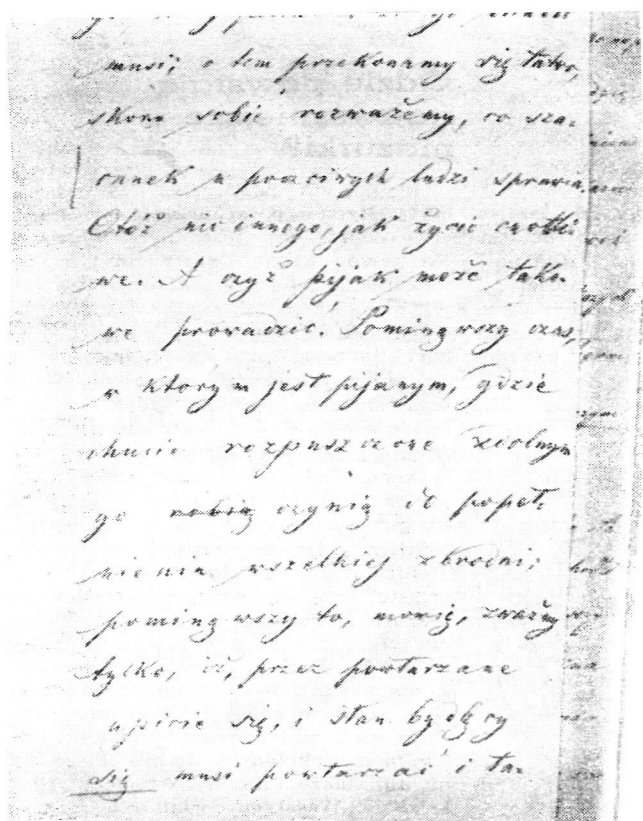 musi; o tem przekonamy się łatwo,
skoro sobie rozważemy, co sza-
cunek u poczciwych ludzi sprawia.
Otóż nic innego, jak życie cnotli-
we. A czyż pijak może tako-
we prowadzić. Pominąwszy czas,
w ktorym jest pijanym, gdzie
chucie rozpuszczone zdolnym
go robią czynią do popeł-
nienia wszelkiej zbrodni;
pominąwszy to, mówię, zważmy
tylko, iż, przez powtarzane
upicie się, i stan bydlęcy
się musi powtarzać i ta-